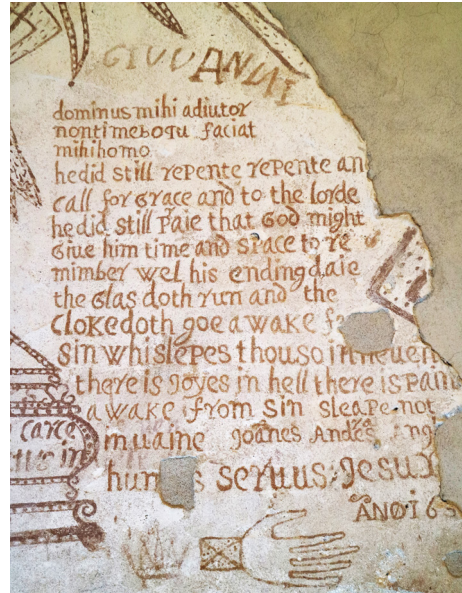 GIVVANNI
dominus mihi adiutor
nontimebogu faciat
mihihomo
hedid still repente repente an
call for grace and to the lorde
he did still Paie that God might
Giue him time and space to re
mimber wel his ending daie
the Glas doth run and the
Cloke doth goe awake f
Sin whislepes thou so in heuen
there is joyes in hell there is pain
awake from sin sleape not
care muaine Joānes Andēs Ang
in hum s seruus Jesu
ANOI6